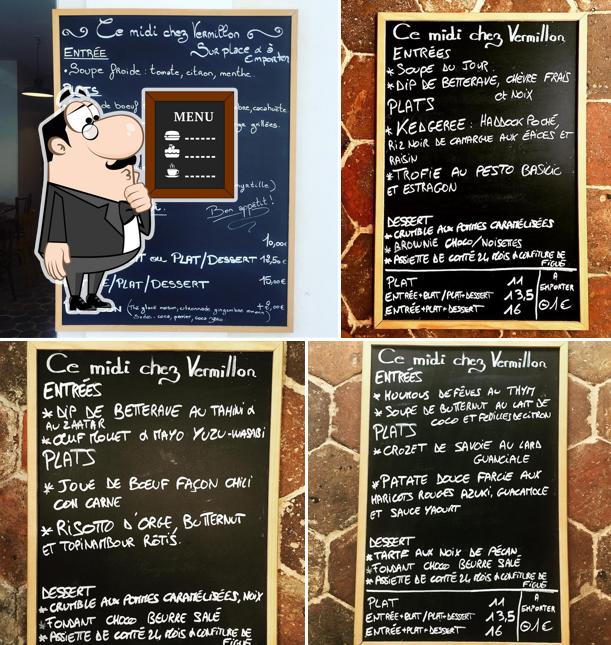 Ce midi chez Vermillon
Sur place & à
Emporter
ENTRÉE
• Soupe froide : tomate, citron, menthe.
PLATS
de boeuf
be, cacahuète
ge grillées.
MENU
yrtille)
Bon appétit !
10,00€
ou PLAT/DESSERT 12,50€
E/PLAT/DESSERT 15,00€
Ce midi chez Vermillon
ENTRÉES
* SOUPE DU JOUR
* DIP DE BETTERAVE, CHÈVRE FRAIS
et NOIX
PLATS
* KEDGEREE : HADDOCK POCHÉ,
RIZ NOIR DE CAMARGUE AUX ÉPICES ET
RAISIN
* TROFIE AU PESTO BASILIC
ET ESTRAGON
DESSERT
* CRUMBLE AUX POMMES CARAMÉLISÉES
* BROWNIE CHOCO/NOISETTES
* ASSIETTE DE COMTÉ 24 MOIS & CONFITURE DE
FIGUE
PLAT 11
ENTRÉE+PLAT/PLAT+DESSERT 13,5
ENTRÉE+PLAT+DESSERT 16
À
EMPORTER
⊖1€
Ce midi chez Vermillon
ENTRÉES
* DIP DE BETTERAVE AU TAHINI &
AU ZAATAR
* OEUF MOLLET & MAYO YUZU-WASABI
PLATS
* JOUE DE BOEUF FAÇON CHILI
CON CARNE
* RISOTTO D'ORGE, BUTTERNUT
ET TOPINAMBOUR RÔTIS.
DESSERT
* CRUMBLE AUX POMMES CARAMÉLISÉES, NOIX
FONDANT CHOCO BEURRE SALÉ
* ASSIETTE DE COMTÉ 24 MOIS & CONFITURE DE
FIGUE
Ce midi chez Vermillon
ENTRÉES
* HOUMOUS DE FÈVES AU THYM
* SOUPE DE BUTTERNUT AU LAIT DE
COCO ET FEUILLES DE CITRON
PLATS
* CROZET DE SAVOIE AU LARD
GUANCIALE
* PATATE DOUCE FARCIE AUX
HARICOTS ROUGES AZUKI, GUACAMOLE
ET SAUCE YAOURT
DESSERT
* TARTE AUX NOIX DE PÉCAN
* FONDANT CHOCO BEURRE SALÉ
* ASSIETTE DE COMTÉ 24 MOIS & CONFITURE DE
FIGUE
PLAT 11
ENTRÉE+PLAT/PLAT+DESSERT 13,5
ENTRÉE+PLAT+DESSERT 16
À
EMPORTER
⊖1€